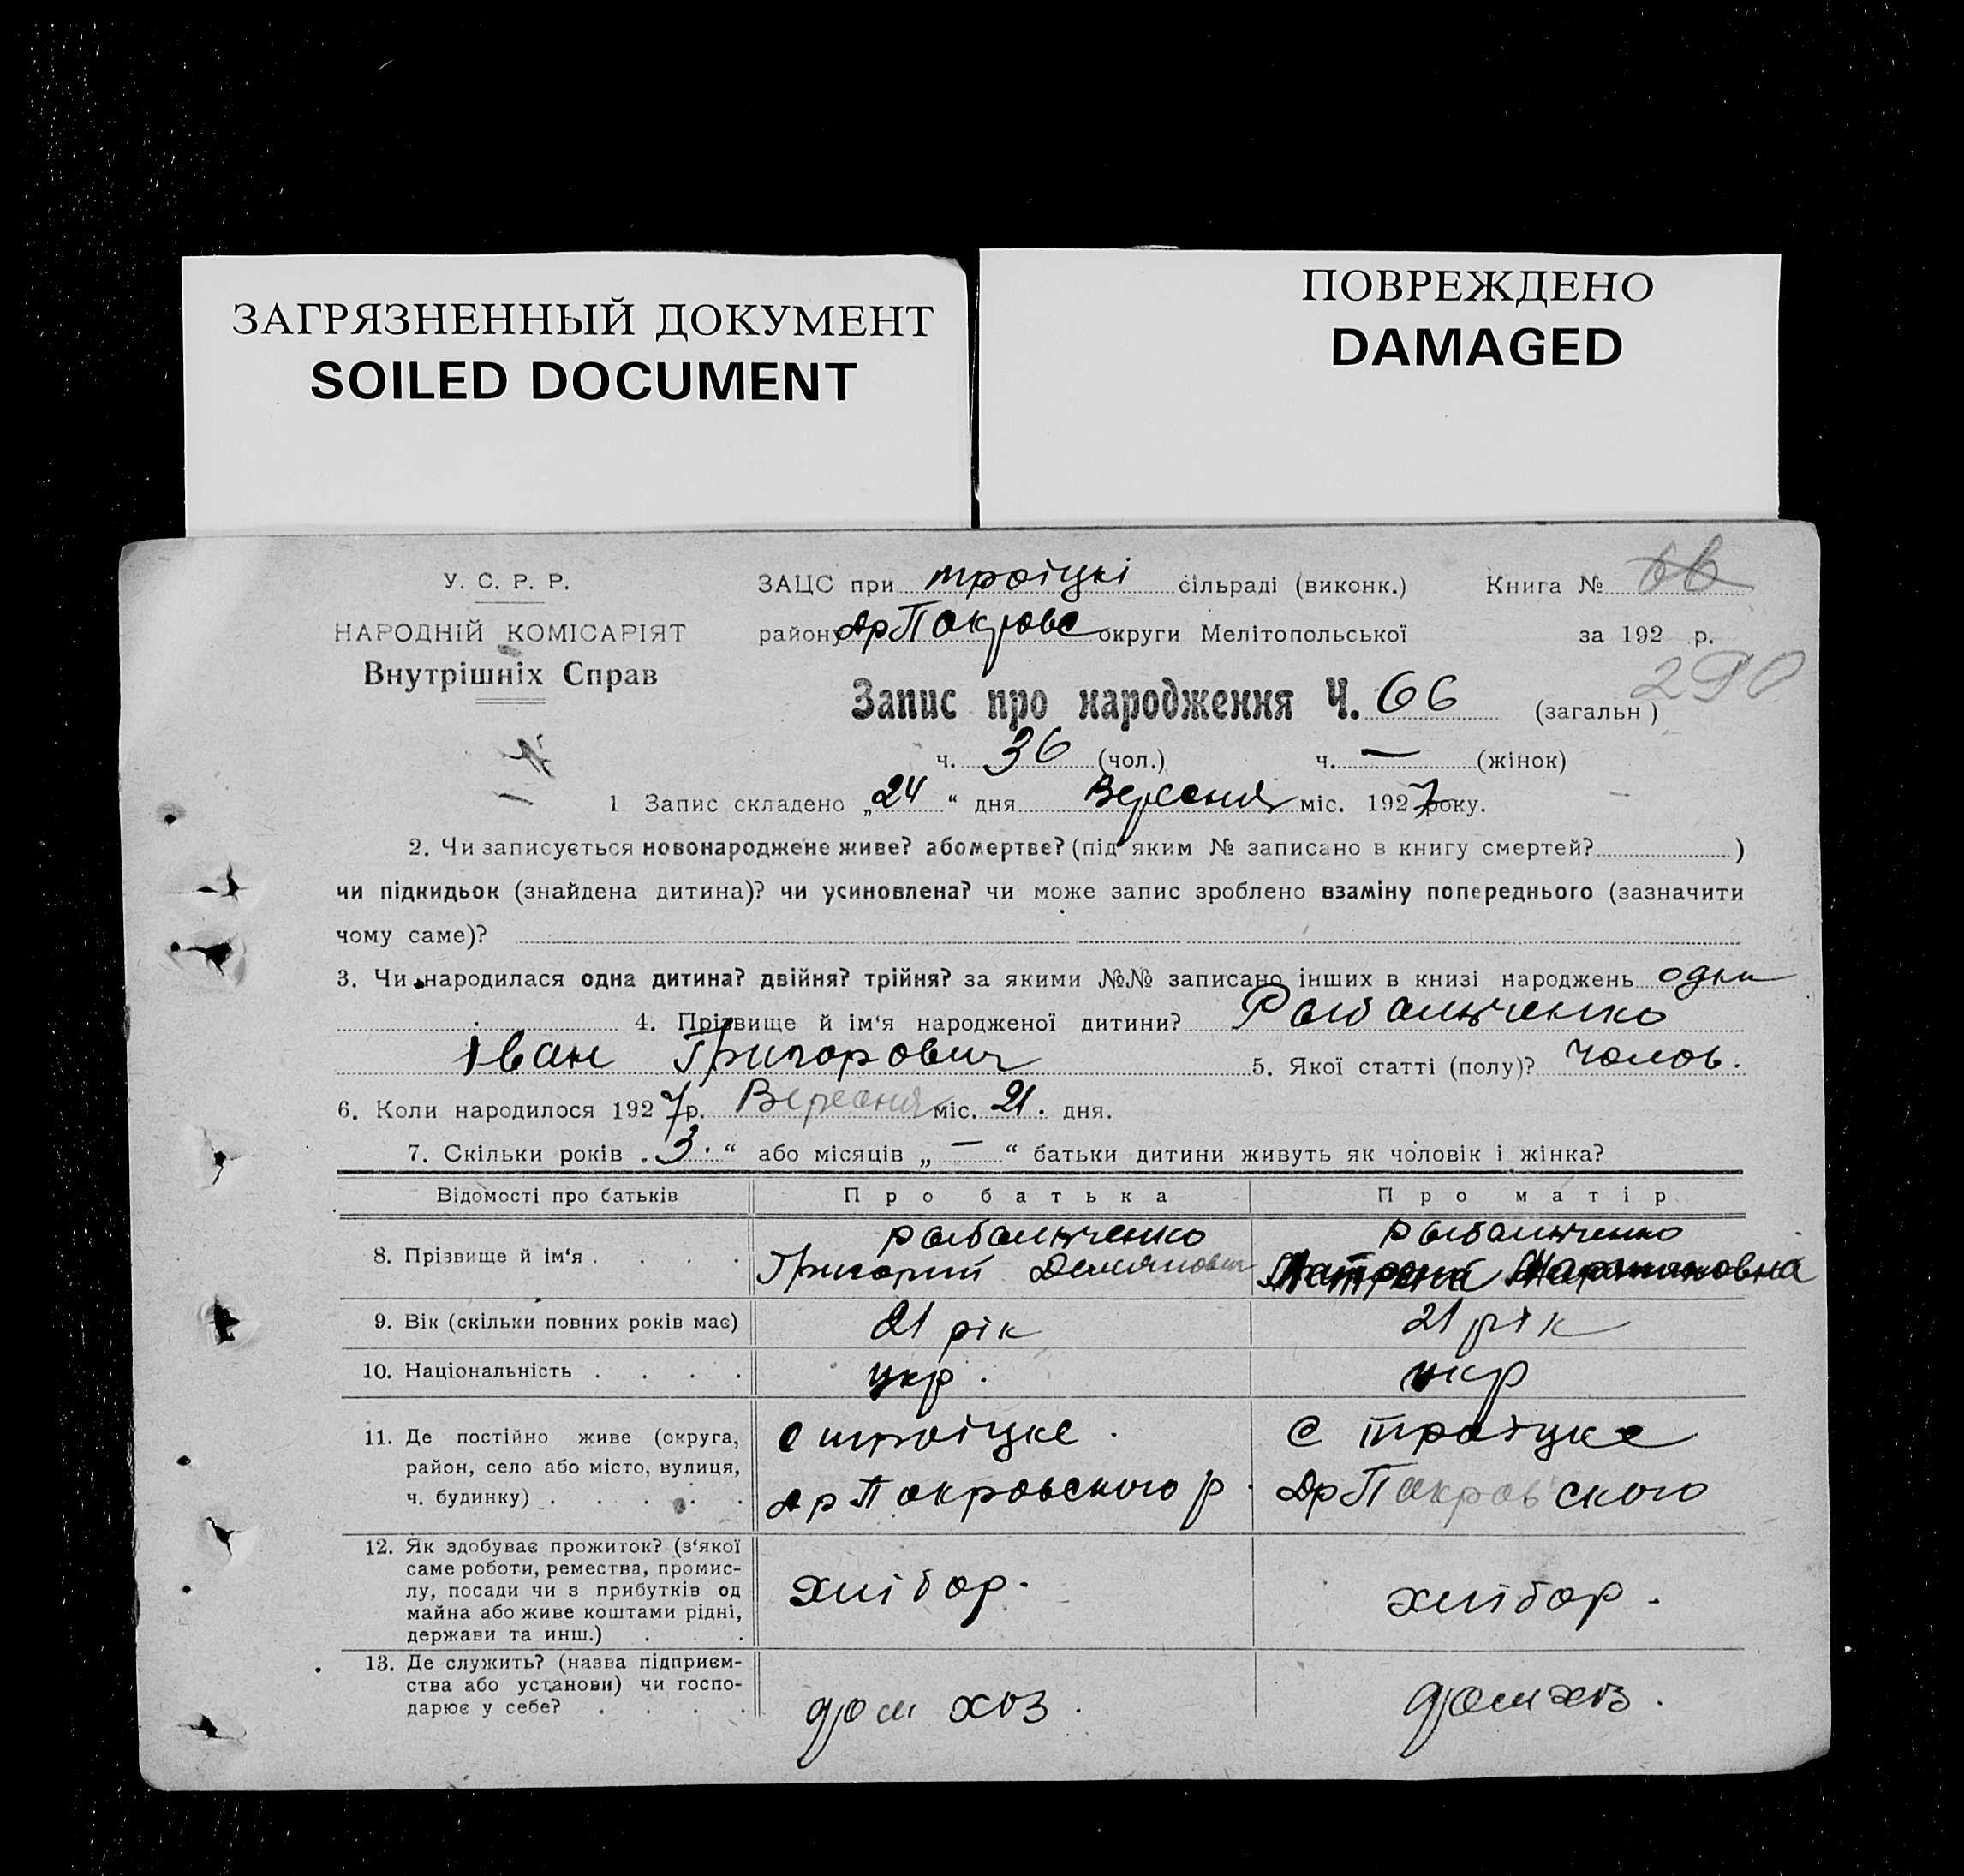 ЗАГРЯЗНЕННЫЙ ДОКУМЕНТ
SOILED DOCUMENT
ПОВРЕЖДЕНО
DAMAGED
У. С. Р. Р.
НАРОДНІЙ КОМІСАРІЯТ
Внутрішніх Справ
ЗАЦС при троіцкі сільраді (виконк.) Книга № 66
району ДрПокровс округи Мелітопольської за 192 р.
290
Запис про народження Ч. 66 (загальн)
ч. 36 (чол.) ч. — (жінок)
1 Запис складено „24“ дня Вересня міс. 1927 року.
2. Чи записується новонароджене живе? або мертве? (під яким № записано в книгу смертей? )
чи підкидьок (знайдена дитина)? чи усиновлена? чи може запис зроблено взаміну попереднього (зазначити
чому саме)?
3. Чи народилася одна дитина? двійня? трійня? за якими №№ записано інших в книзі народжень одна
4. Прізвище й ім‘я народженої дитини? Рыбальченко
Іван Григорович 5. Якої статті (полу)? Чолов.
6. Коли народилося 1927 р. Вересня міс. 21. дня.
7. Скільки років „3“ або місяців „—“ батьки дитини живуть як чоловік і жінка?
Відомості про батьків Про батька Про матір
8. Прізвище й ім‘я . . . . Рыбальченко Рыбальченко
Григорий Демянович Мотрона
9. Вік (скільки повних років має) 21 рік 21 рік
10. Національність . . . . укр. укр
11. Де постійно живе (округа, с троіцке. с троіцке
район, село або місто, вулиця,
ч. будинку) . . . . . ДрПокровського р. ДрПокровського
12. Як здобуває прожиток? (з‘якої
саме роботи, ремества, промис-
лу, посади чи з прибутків од хлібор. хлібор.
майна або живе коштами рідні,
держави та инш.) . .
13. Де служить? (назва підприєм-
ства або установи) чи госпо- дом хоз. домхоз.
дарює у себе? . . . .